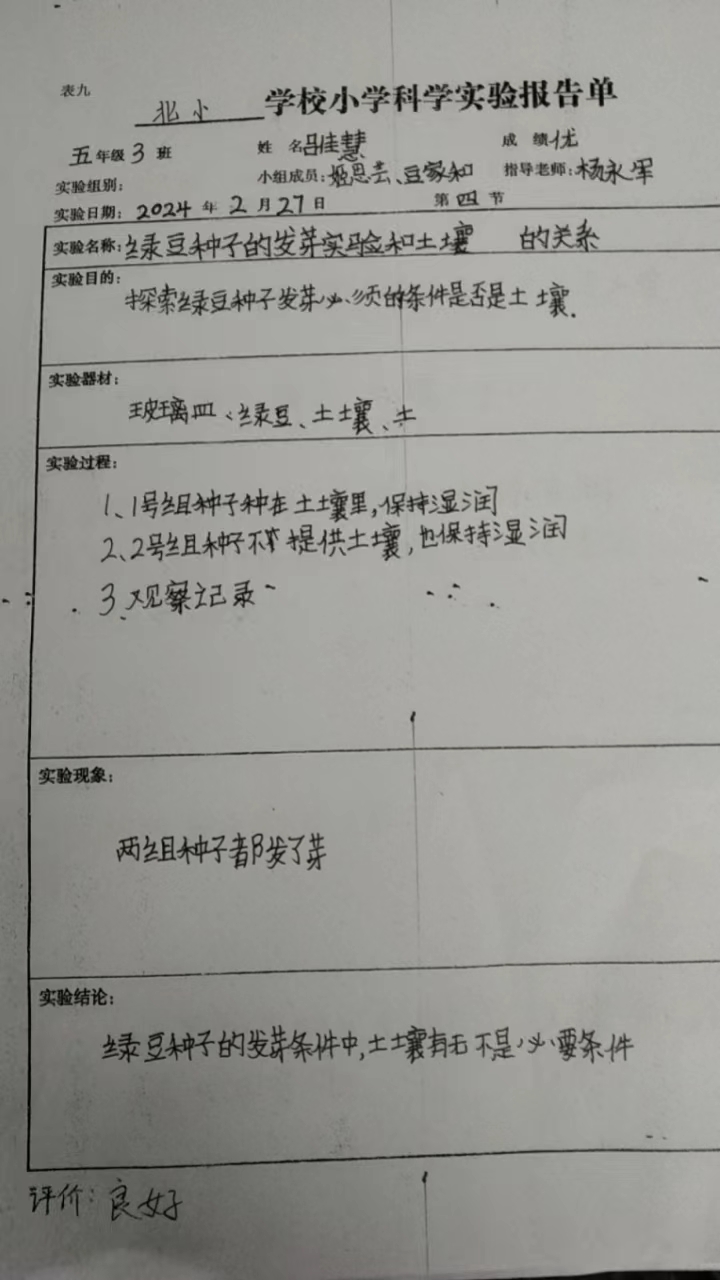 表九
北小 学校小学科学实验报告单
五年级 3 班 姓 名 吕佳慧 成 绩 优
实验组别: 小组成员: 姬思芸、豆家和 指导老师: 杨永军
实验日期: 2024 年 2 月 27 日 第 四 节
实验名称: 绿豆种子的发芽实验和土壤 的关系
实验目的:
探索绿豆种子发芽必须的条件是否是土壤.
实验器材:
玻璃皿、绿豆、土壤、土
实验过程:
1、1号组种子种在土壤里,保持湿润
2、2号组种子不提供土壤,也保持湿润
3.观察记录
实验现象:
两组种子都发了芽
实验结论:
绿豆种子的发芽条件中,土壤有无不是必要条件
评价: 良好